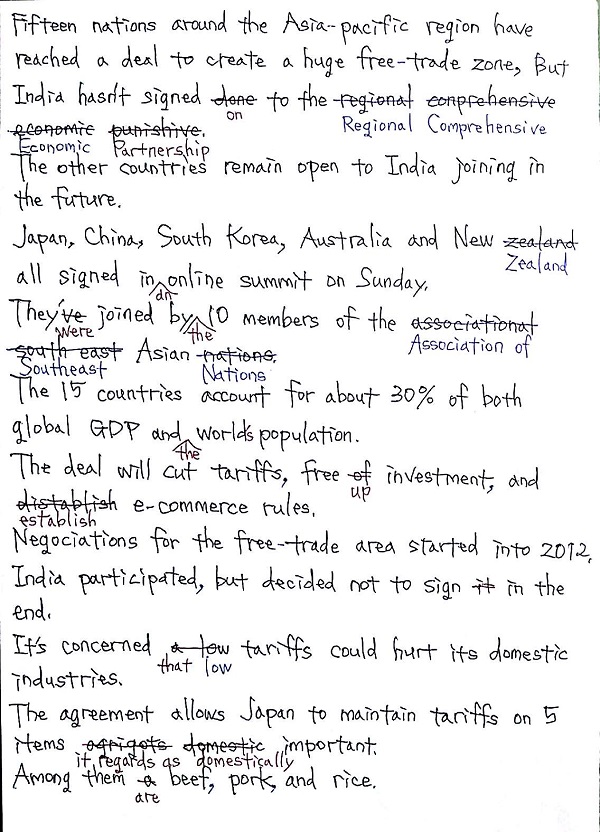 Fifteen nations around the Asia-pacific region have
reached a deal to create a huge free-trade zone, But
India hasn't signed done to the regional conprehensive
on Regional Comprehensive
economic punishive.
Economic Partnership
The other countries remain open to India joining in
the future.
Japan, China, South Korea, Australia and New zealand
Zealand
all signed in online summit on Sunday.
an
They've joined by 10 members of the associational
were the Association of
south east Asian nations.
Southeast Nations
The 15 countries account for about 30% of both
global GDP and world's population.
the
The deal will cut tariffs, free of investment, and
up
distablish e-commerce rules.
establish
Negociations for the free-trade area started into 2012.
India participated, but decided not to sign it in the
end.
It's concerned a low tariffs could hurt its domestic
that low
industries.
The agreement allows Japan to maintain tariffs on 5
items agrigets domestic important.
it regards as domestically
Among them a beef, pork, and rice.
are